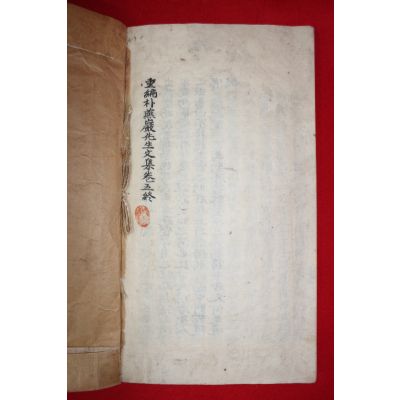 重編朴燕巖先生文集卷五終